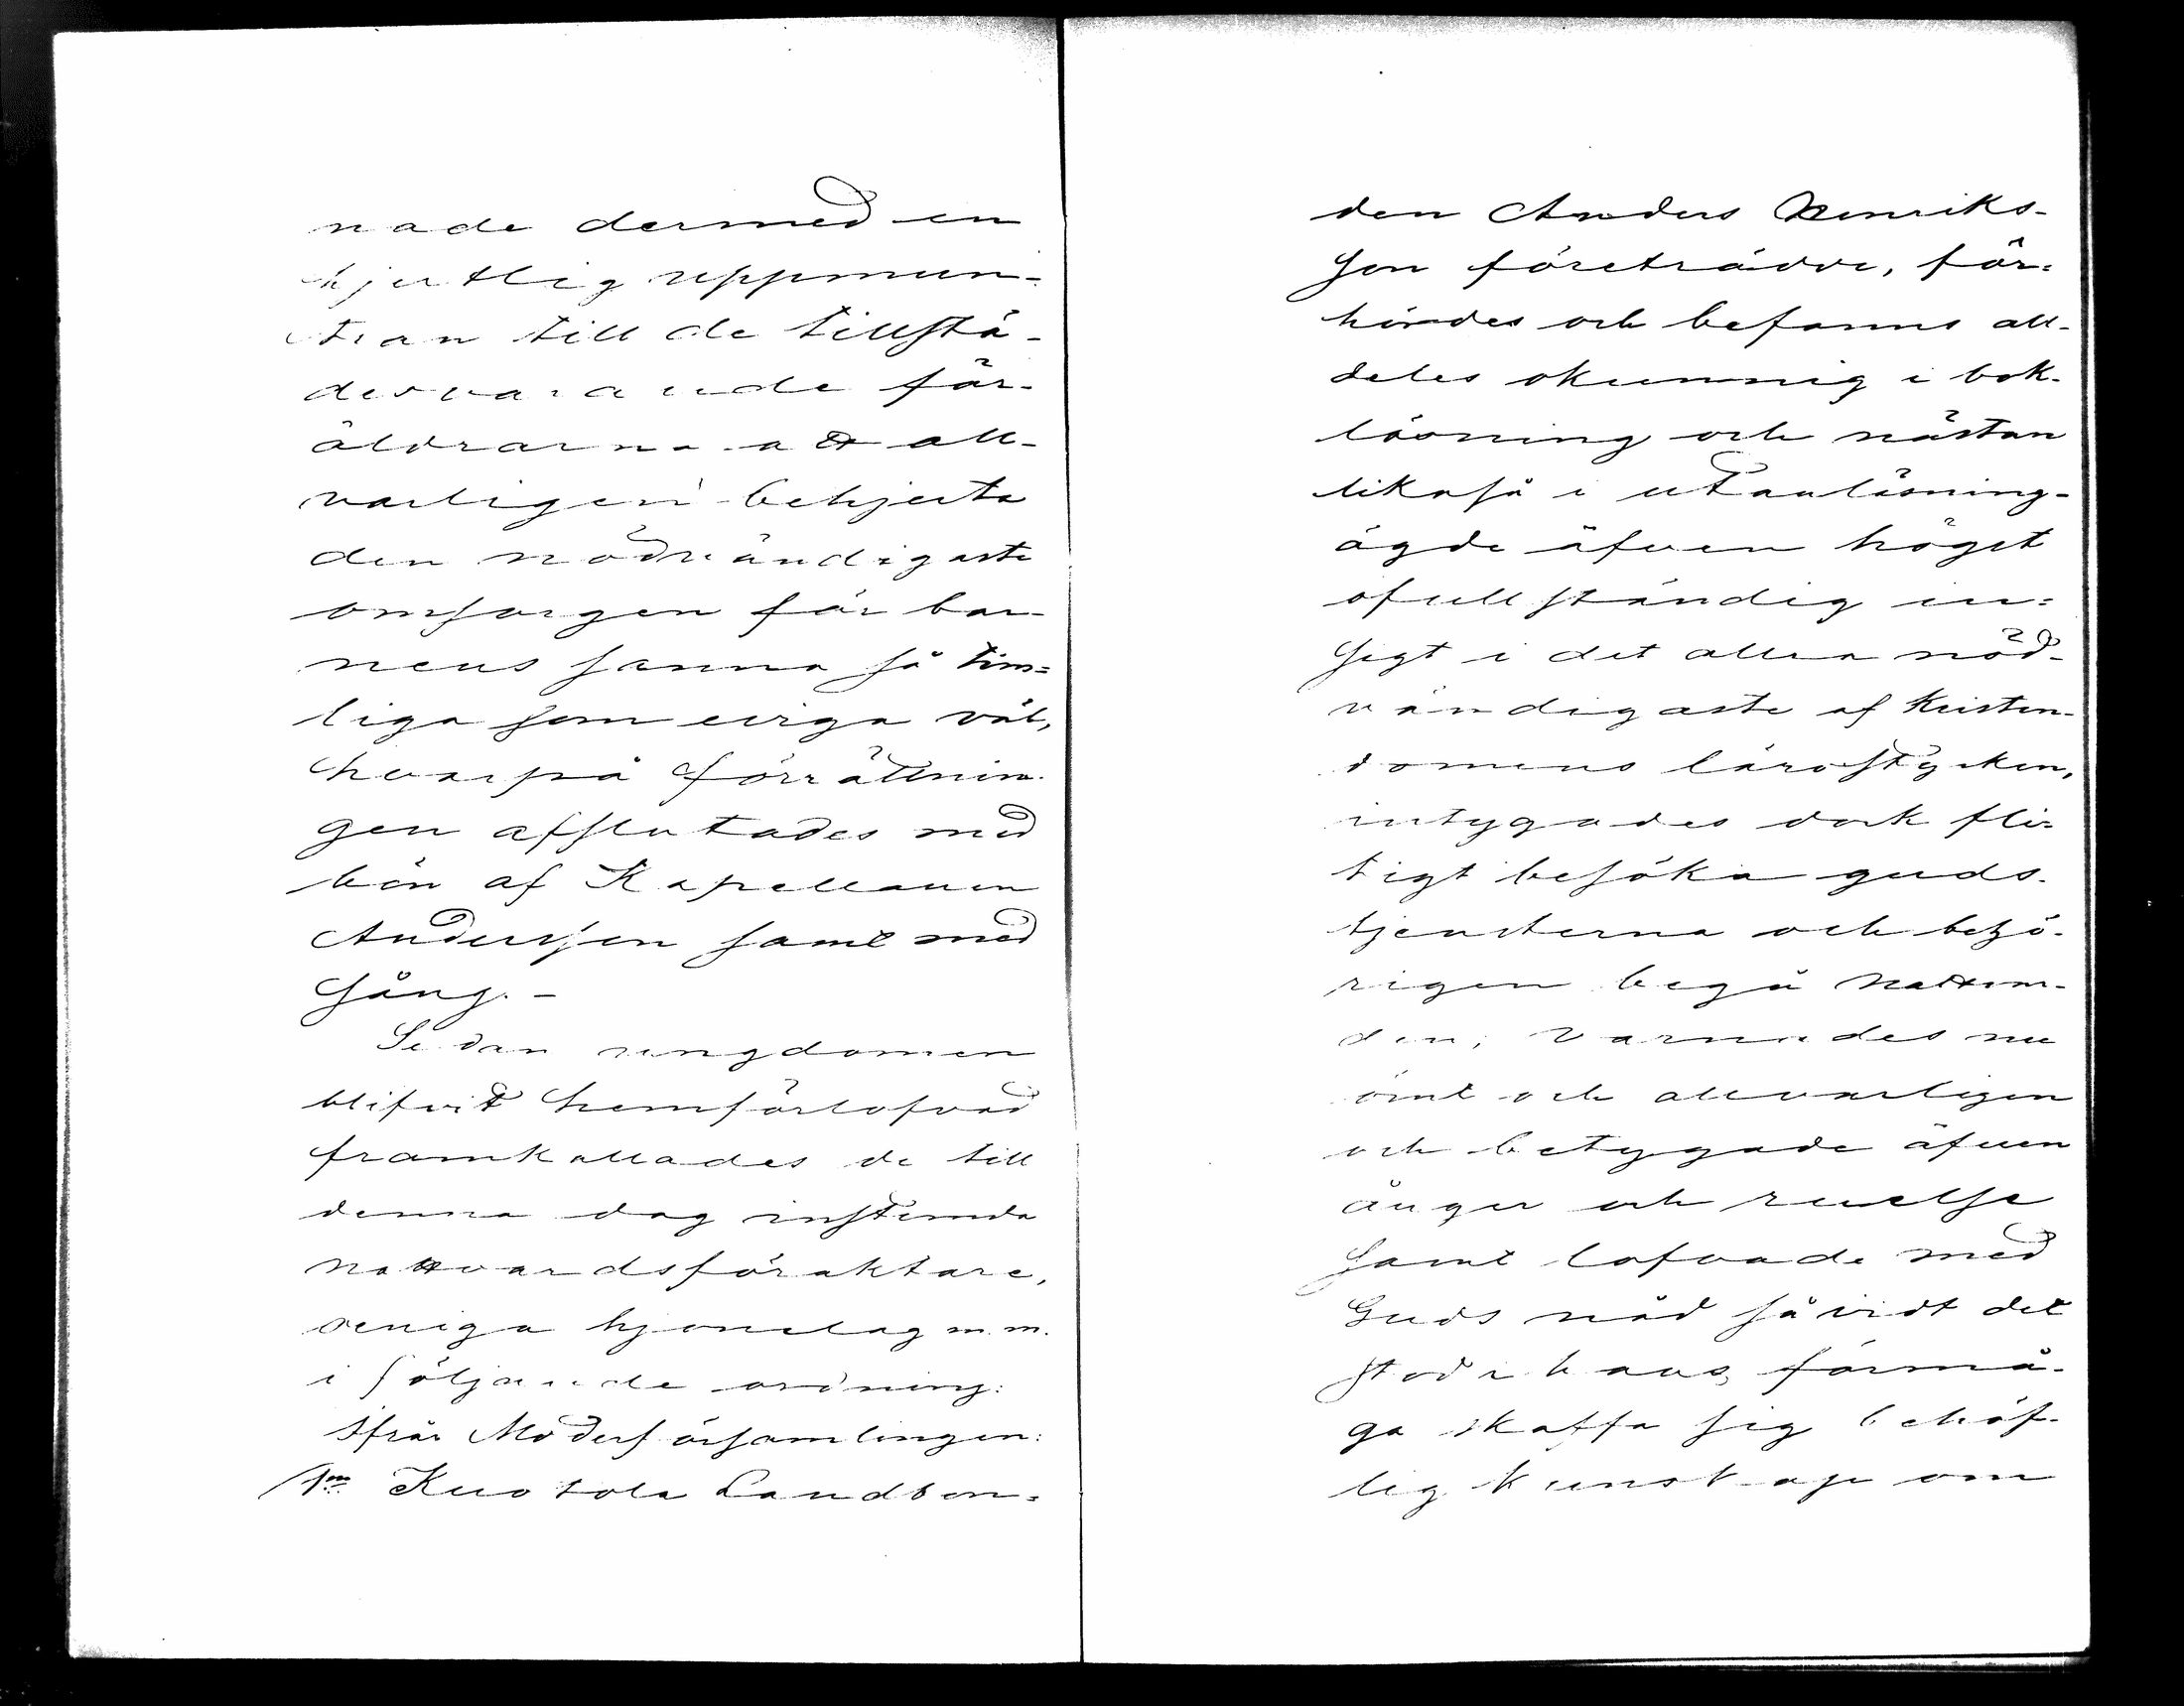 nade dermed en
hjertlig uppmun-
tran till de tillstä-
desvarande för-
äldrarna att all-
varligen behjerta
den nödvändigaste
omsorgen för bar-
nens sanna så tim-
liga som eviga väl,
hvarpå förrättnin-
gen afslutades med
bön af Kapellanen
Anderssen samt med
Sång. -
Sedan ungdomen
blifvit hemförlofvad
framkallades de till
denna dag instemda
nattvardsföraktare,
oeniga hjonelag m.m.
i följande ordning:
Ifrån Moderförsamlingen:
1m Kuotola Landbon-
den Anders Henriks-
son företrädde, för-
hördes och befanns all-
deles okunnig i bok-
läsning och nästan
likaså i utanläsning-
ägde äfven högst
ofullständig in-
sigt i det allra nöd-
vändigaste af Kristen-
domens lärostycken,
intygades dock fli-
tigt besöka guds-
tjensterna och behö-
rigen begå Nattvar-
den; varnades nu
ömt och allvarligen
och betygade äfven
ånger och ruelse
samt lofvade med
Guds nåd så vidt det
stod i hans förmå-
ga skaffa sig behöf-
lig kunskap om